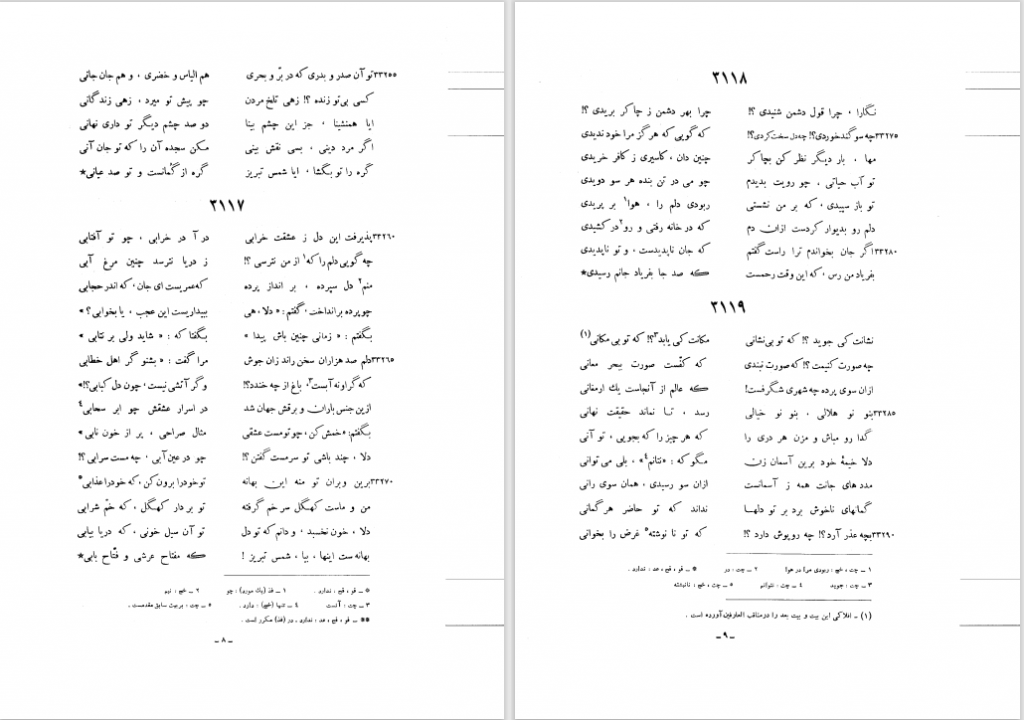 ۳۳۲۵۵ تو آن صدر و بدری که در برّ و بحری هم الیاس و خضری ، و هم جان جانی
کسی بی‌تو زنده ؟! زهی تلخ مردن چو پیش تو میرد ، زهی زندگانی
ایا همنشینا ، جز این چشم بینا دو صد چشم دیگر تو داری نهانی
اگر مرد دینی ، بسی نقش بینی مکن سجده آن را که تو جان آنی
گره را تو بگشا ، ایا شمس تبریز گره از گمانست و تو صد عیانی*
۳۱۱۷
۳۳۲۶۰ بپذیرفت این دل ز عشقت خرابی در آ در خرابی ، چو تو آفتابی
چه گویی دلم را که۱ از من نترسی ؟! ز دریا نترسد چنین مرغ آبی
منم۲ دل سپرده ، بر انداز پرده که عمریست ای جان ، که اندر حجابی
چو پرده بر انداخت ، گفتم : « دلا ، هی ببیداریست این عجب ، یا بخوابی ؟ »
بگفتم : « زمانی چنین باش پیدا » بگفتا که : « شاید ولی بر نتابی »
۳۳۲۶۵ دلم صد هزاران سخن راند زان جوش مرا گفت : « بشنو گر اهل خطابی
که گر او نه آبست۳، باغ از چه خندد؟! و گر آتشی نیست ، چون دل کبابی؟!»
ازین جنس باران و برقش جهان شد در اسرار عشقش چو ابر سحابی۴
بگفتم: «خمش کن ، چو تو مست عشقی مثال صراحی ، پر از خون نابی »
دلا ، چند باشی تو سرمست گفتن ؟! چو در عین آبی ، چه مست سرابی ؟!
۳۳۲۷۰ برین و بران تو منه این بهانه تو خود را برون کن ، که خود را عذابی۵
من و ماست کهگل سر خم گرفته تو بر دار کهگل ، که خمّ شرابی
دلا ، خون نخسبد ، و دانم که تو دل تو آن سیل خونی ، که دریا بیابی
بهانه ست اینها ، بیا ، شمس تبریز ! که مفتاح عرشی و فتّاح بابی*
* - قو ، قح : ندارد . ۱ - فذ (یك مورد) : چو ۲ - خج : نیم
۳ - چت : آتست ۴ - تنها (خج) : دارد . ۵ - چت : بربیت سابق مقدمست .
** - قو ، قح ، عد : ندارد . در (فذ) مکرر است .
- ۸ -
۳۱۱۸
نگارا ، چرا قول دشمن شنیدی ؟! چرا بهر دشمن ز چاکر بریدی ؟!
۳۳۲۷۵ چه سوگند خوردی؟! چه دل سخت کردی؟! که گویی که هرگز مرا خود ندیدی
مها ، بار دیگر نظر کن بچاکر چنین دان ، کاسیری ز کافر خریدی
تو آب حیاتی ، چو رویت بدیدم چو می در تن بنده هر سو دویدی
تو باز سپیدی ، که بر من نشستی ربودی دلم را ، هوا۱ بر پریدی
دلم رو بدیوار کردست ازان دم که در خانه رفتی و رو۲ در کشیدی
۳۳۲۸۰ اگر جان بخواندم ترا راست گفتم که جان ناپدیدست ، و تو ناپدیدی
بفریاد من رس ، که این وقت رحمست که صد جا بفریاد جانم رسیدی*
۳۱۱۹
نشانت کی جوید ؟! که تو بی‌نشانی مکانت کی یابد۳؟! که تو بی مکانی (۱)
چه صورت کنیمت ؟! که صورت نبندی که کفّست صورت ببحر معانی
ازان سوی پرده چه شهری شگرفست! که عالم از آنجاست یك ارمغانی
۳۳۲۸۵ بنو نو هلالی ، بنو نو خیالی رسد ، تا نماند حقیقت نهانی
گدا رو مباش و مزن هر دری را که هر چیز را که بجویی ، تو آنی
دلا خیمهٔ خود برین آسمان زن مگو که : «نتانم۴» ، بلی می توانی
مددهای جانت همه ز آسمانست ازان سو رسیدی ، همان سوی رانی
گمانهای ناخوش برد بر تو دلها نداند که تو حاضر هر گمانی
۳۳۲۹۰ بچه عذر آرد؟! چه روپوش دارد ؟! که تو نا نوشته۵ غرض را بخوانی
۱ - چت ، خج : ربودی مرا در هوا ۲ - چت : در * - قو ، قح ، عد : ندارد .
۳ - چت : جوید ۴ - چت : نتوانم ۵ - چت ، خج : نانبشته
(۱) - افلاکی این بیت و بیت بعد را در مناقب العارفین آورده است .
- ۹ -